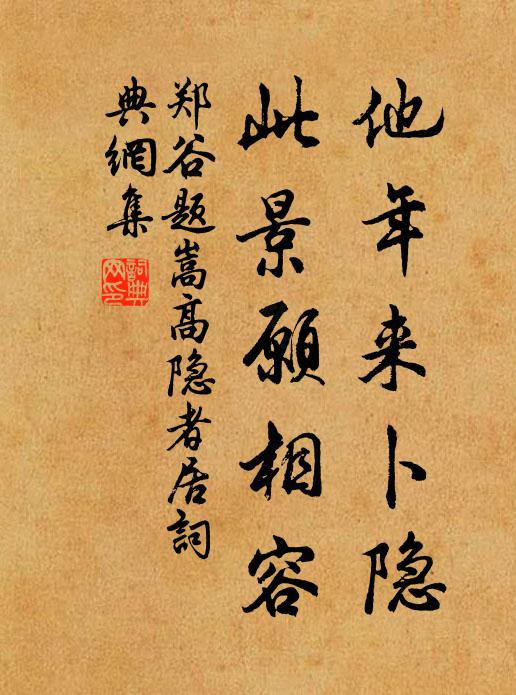 他年来卜隐
此景願相容
郑谷题嵩高隐者居詞
典網集
詞典
网印